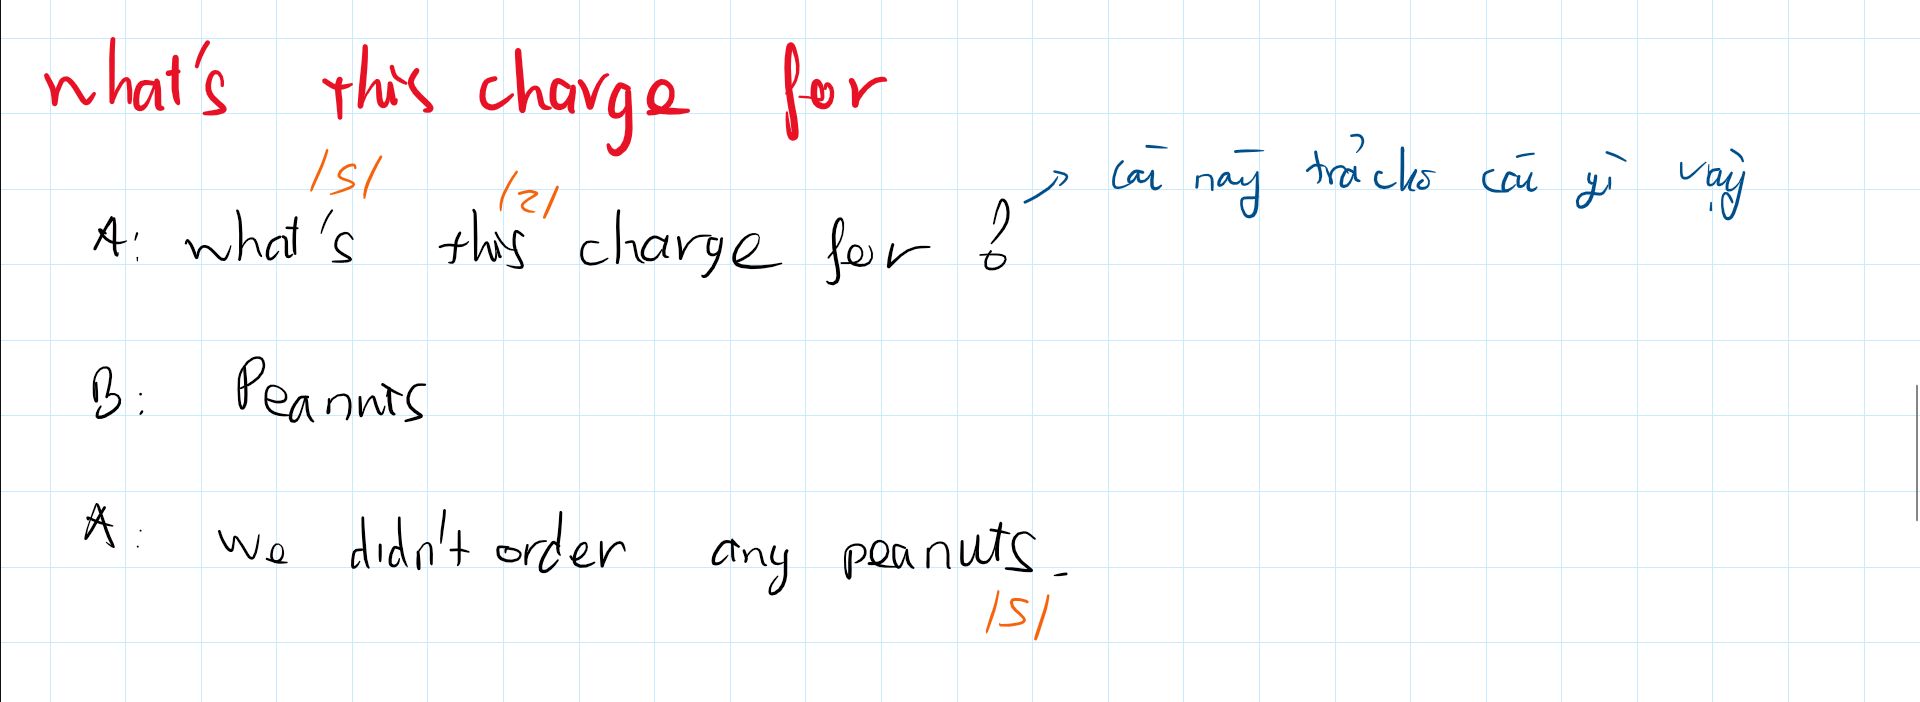 what's this charge for
/s/ /z/
A: what's this charge for ? → cái này trả cho cái gì vậy
B: Peanuts
A: we didn't order any peanuts.
/s/